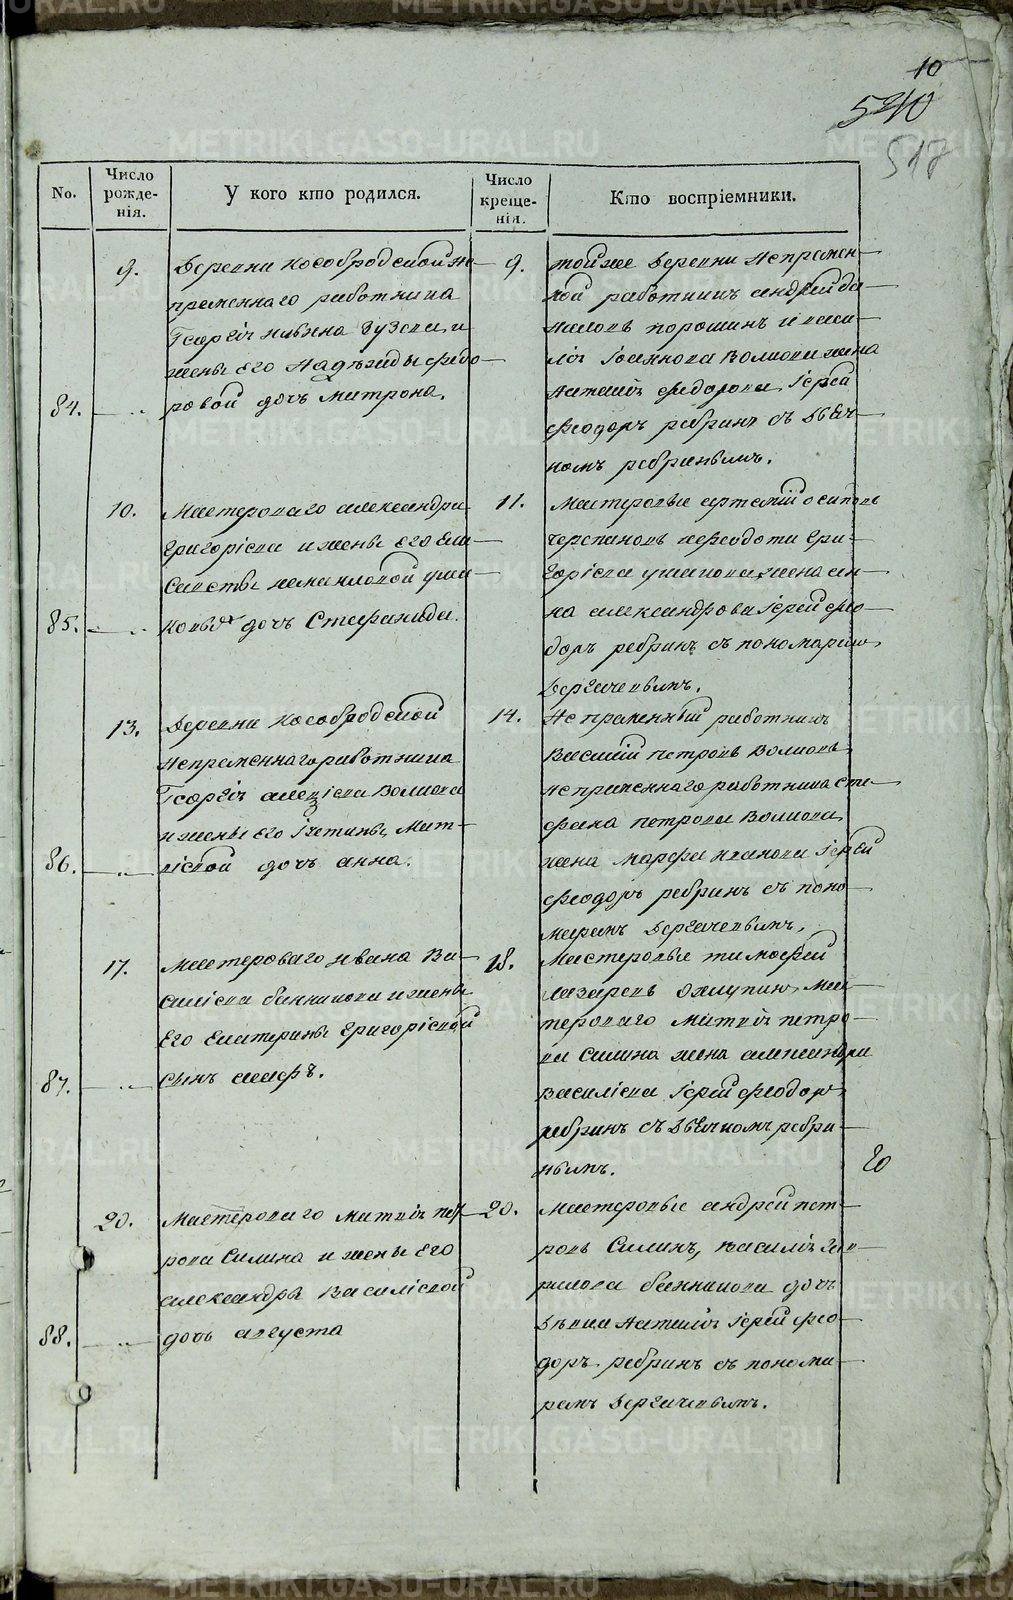 10
520
517
No.
Число рожде-нія.
У кого кто родился.
Число креще-нія.
Кто воспріемники.
84.
9.
Деревни Кособродской не-
пременнаго работника
Георгія
жены его Надежды Федо-
ровой дочь Матрона.
9.
той же деревни непремен-
ной работникъ Андрей Да-
ниловъ Порошинъ и Васи-
лія Іоаннова Волкова жена
Наталія Федорова Іерей
Феодоръ Ребринъ съ дьяч-
комъ Ребринымъ.
85.
10.
Мастероваго Александра
Григоріева и жены его Ели-
саветы
дочь Стефанида.
11.
Мастеровые Артемій Осиповъ
Черепановъ и Феодота Гри-
горіева Ушакова жена Ан-
на Александрова Іерей Фео-
доръ Ребринъ съ пономаремъ
Дергачевымъ.
86.
13.
Деревни Кособродской
непременнаго работника
Георгія Алексіева Волкова
и жены его Іустины Мат-
віевой дочь Анна.
14.
Непременный работникъ
Василій Петровъ Волковъ
непременнаго работника Сте-
фана Петрова Волкова
жена Марфа Иванова Іерей
Феодоръ Ребринъ съ поно-
маремъ Дергачевымъ.
87.
17.
Мастероваго Ивана Ва-
силіева Банникова и жены
его Екатерины Григоріевой
сынъ
18.
Мастеровые Тимофей
Лазаревъ мас-
тероваго Матвія Петро-
ва Силина жена Александра
Василіева Іерей Феодоръ
Ребринъ съ дьячкомъ Ребри-
нымъ.
20
88.
20.
Мастероваго Матвія Пет-
рова Силина и жены его
Александры Василіевой
дочь Августа
20.
Мастеровые Андрей Пет-
ровъ Силинъ, Василія Гав-
рилова Банникова дочь
девица Наталія Іерей Фео-
доръ Ребринъ съ понома-
ремъ Дергачевымъ.
METRIKI.GASO-URAL.RU